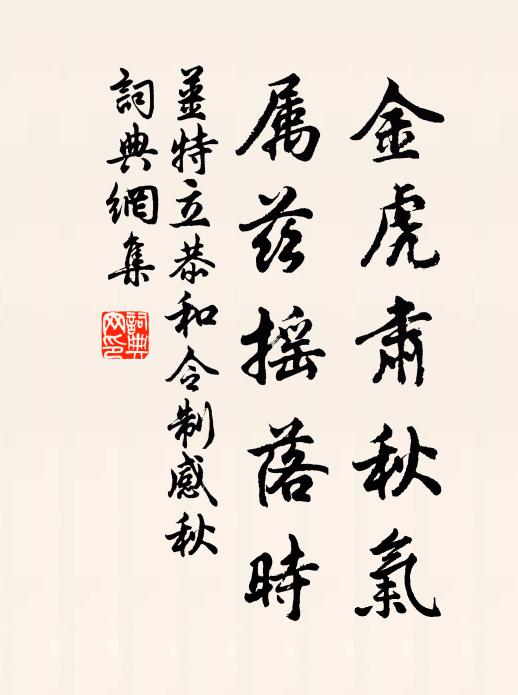 金虎肃秋氣
属兹摇落時
姜特立恭和令制感秋
詞典網集
詞典网印